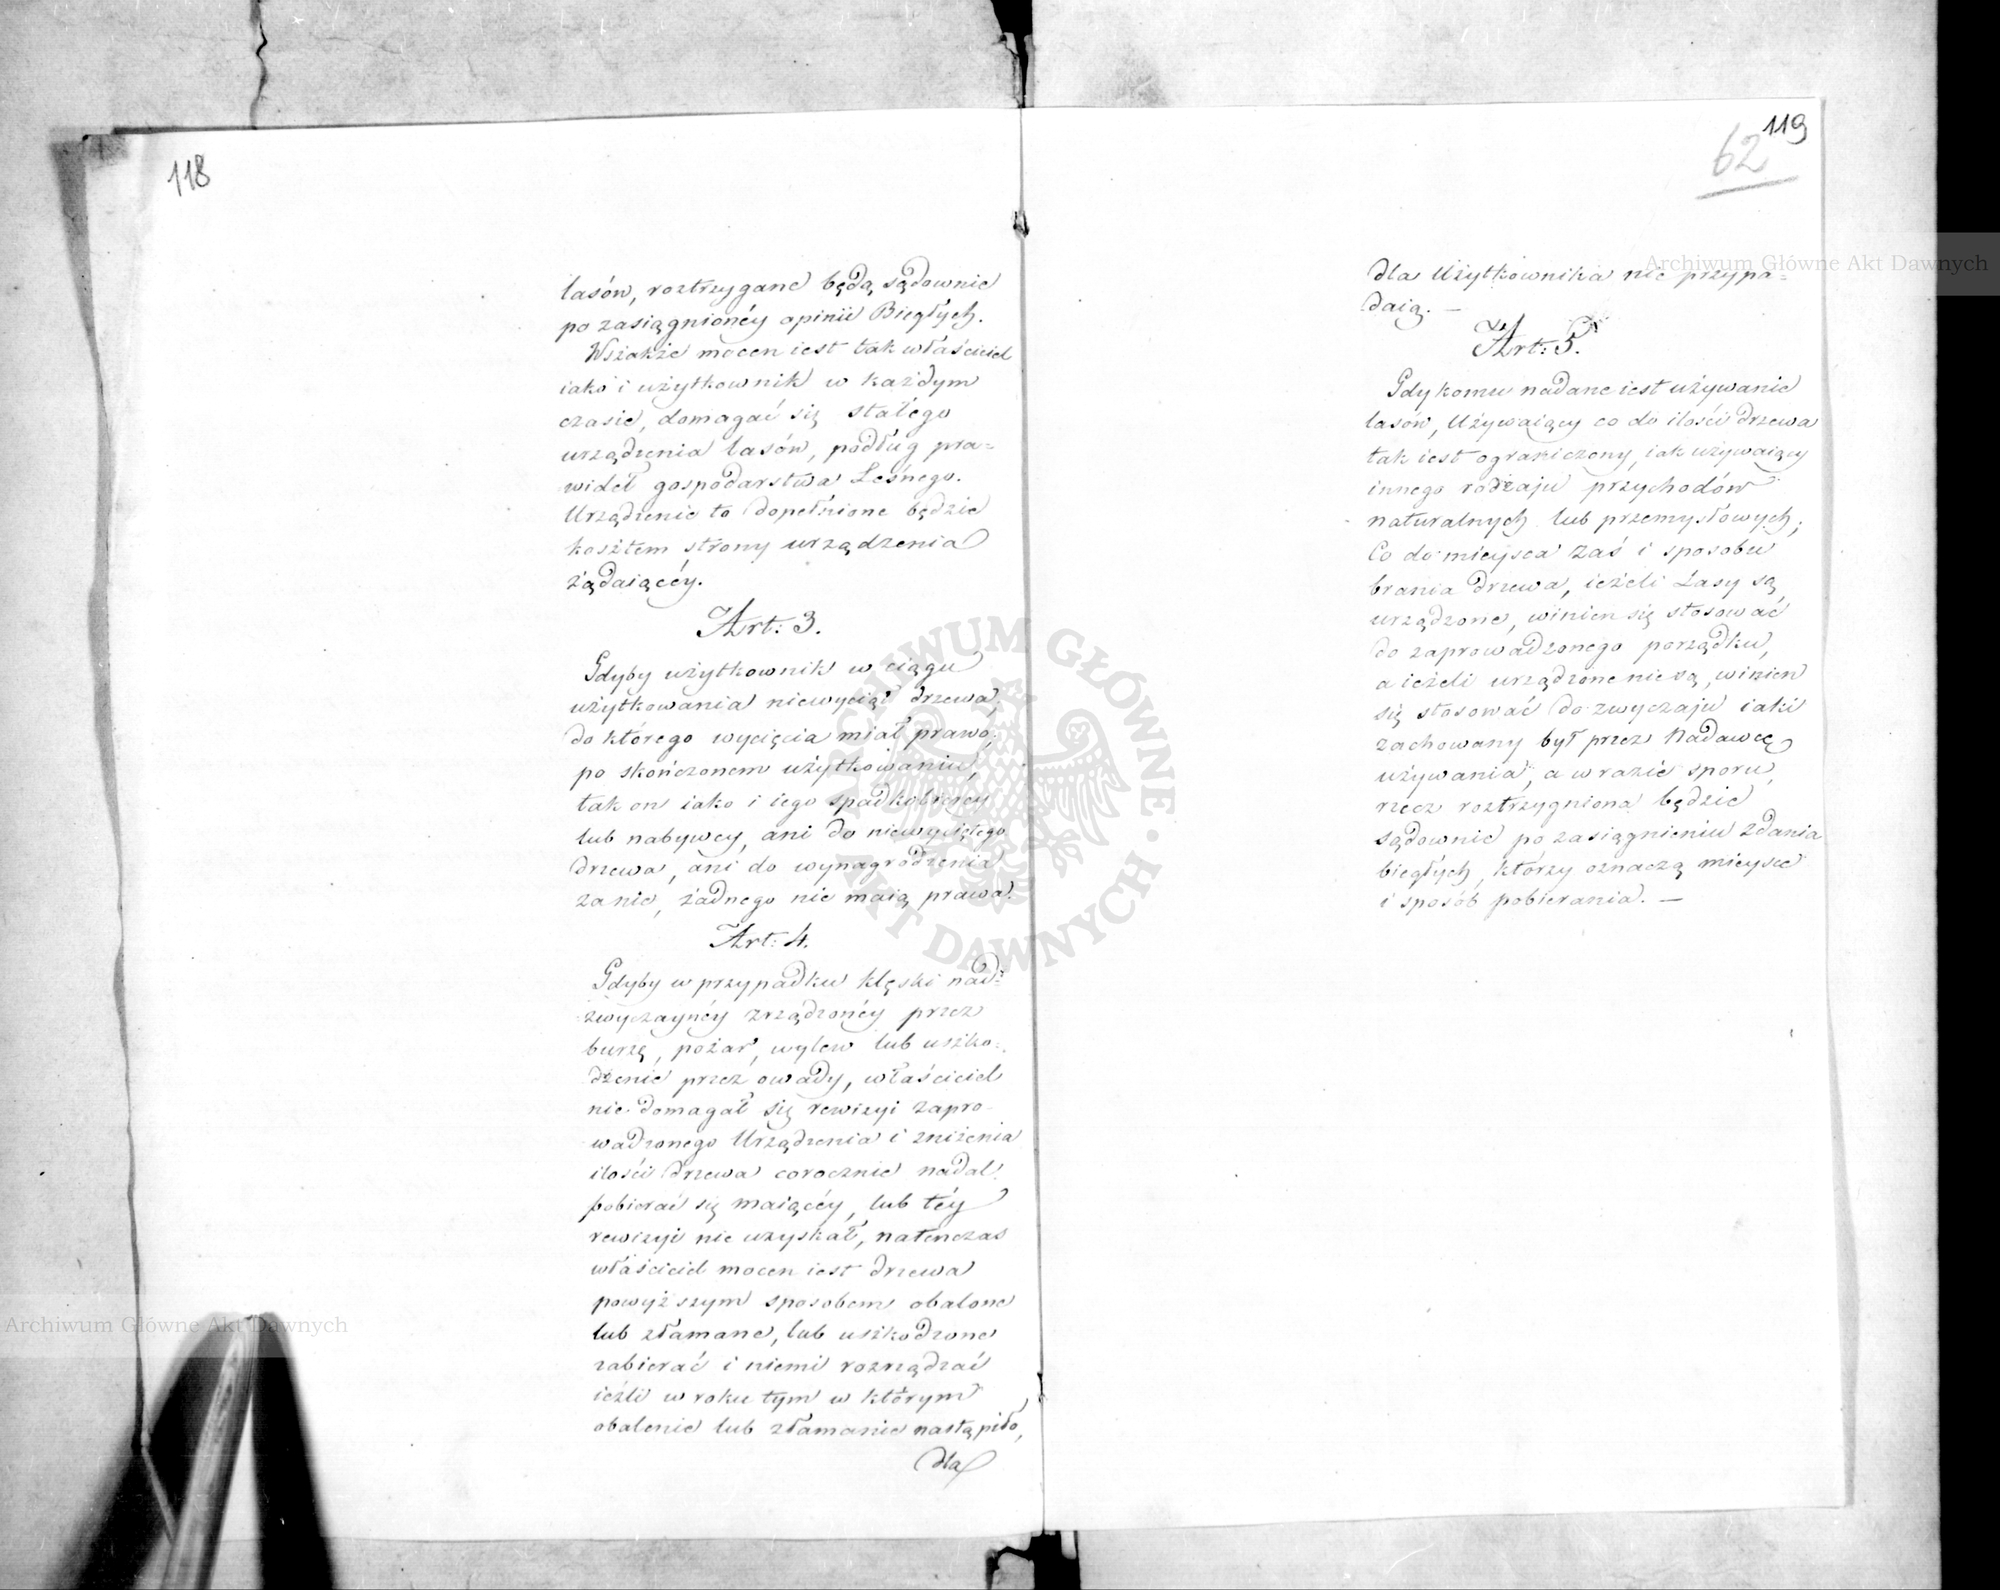 118
lasów, roztrzygane będą sądownie
po zasiągnionéy opinii Biegłych.
Wszakże mocen iest tak właściciel
iako i użytkownik w każdym
czasie, domagać się stałego
urządzenia lasów, podług pra=
wideł gospodarstwa Leśnego.
Urządzenie to dopełnione będzie
kosztem strony urządzenia
żądaiącéy.
Art: 3.
Gdyby użytkownik w ciągu
użytkowania niewyciął drzewa,
do którego wycięcia miał prawo,
po skończonem użytkowaniu,
tak on iako i iego spadkobiercy
lub nabywcy, ani do niewyciętego
drzewa, ani do wynagrodzenia
zanie, żadnego nie maią prawa.
Art: 4.
Gdyby w przypadku klęski nad=
zwyczaynéy zrządzonéy przez
burzę, pożar, wylew lub uszko=
dzenie przez owady, właściciel
nie domagał się rewizyi zapro-
wadzonego Urządzenia i zniżenia
ilości drzewa corocznie nadal
pobierać się maiącéy, lub téy
rewizyi nie uzyskał, natenczas
właściciel mocen iest drzewa
powyższym sposobem obalone
lub złamane, lub uszkodzone
zabierać i niemi rozrządzać
ieźli w roku tym w którym
obalenie lub złamanie nastąpiło,
dla
119
62
dla Użytkownika nie przypa=
daią. —
Art: 5.
Gdy komu nadane iest używanie
lasów, Używaiący co do ilości drzewa
tak iest ograniczony, iak używaiący
innego rodzaju przychodów
naturalnych lub przemysłowych;
Co do mieysca zaś i sposobu
brania drzewa, ieżeli Lasy są
urządzone, winien się stosować
do zaprowadzonego porządku,
a ieżeli urządzone nie są, winien
się stosować do zwyczaju iaki
zachowany był przez Nadawcę
używania, a w razie sporu,
rzecz roztrzygniona będzie
sądownie po zasiągnieniu zdania
biegłych, którzy oznaczą mieysce
i sposób pobierania. —
Archiwum Główne Akt Dawnych
Archiwum Główne Akt Dawnych
ARCHIWUM GŁÓWNE · AKT DAWNYCH ·